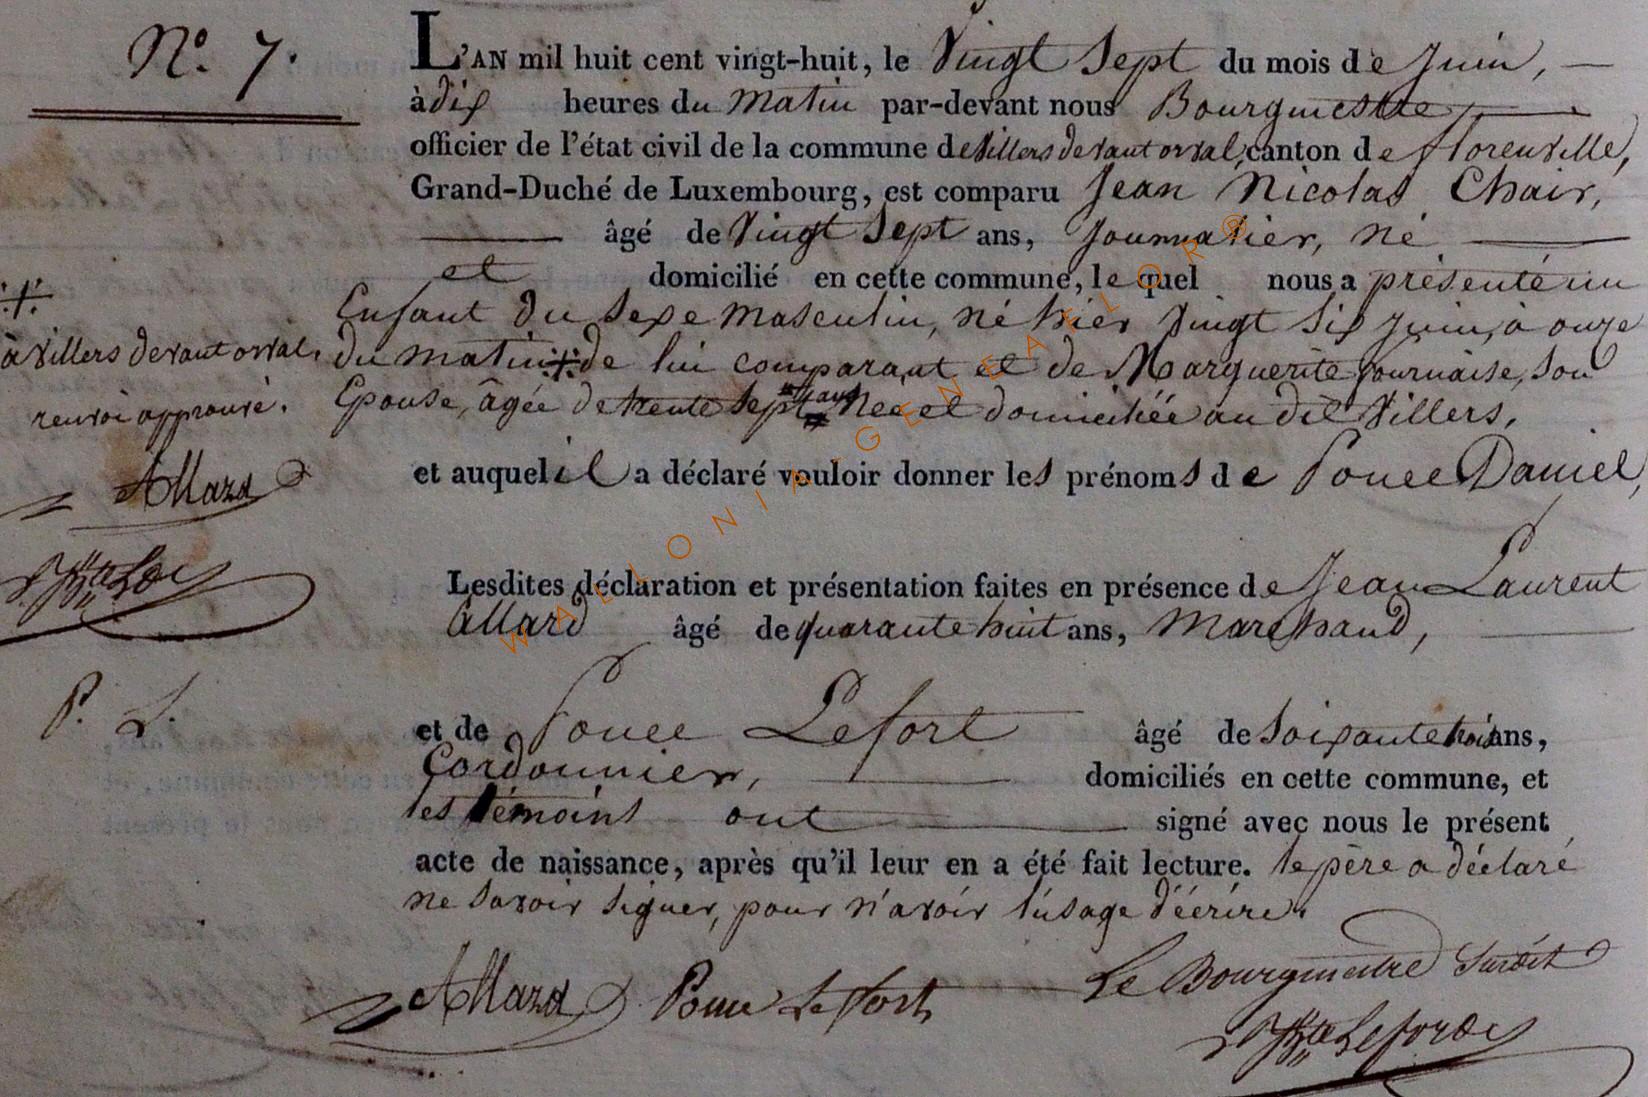 N.º 7.
L'AN mil huit cent vingt-huit, le Vingt Sept du mois de Juin,
à dix heures du Matin par-devant nous Bourgmestre
officier de l'état civil de la commune de Villers devant orval, canton de florenville,
Grand-Duché de Luxembourg, est comparu Jean Nicolas Chair,
âgé de Vingt Sept ans, Journalier, né
et domicilié en cette commune, le quel nous a présenté un
Enfant du sexe masculin, né hier Vingt six juin, à onze
du matin ⁒ de lui comparant et de Marguerite fournaise, son
Epouse, âgée de trente sept ans Née et domiciliée au dit Villers,
et auquel il a déclaré vouloir donner les prénoms de Ponce Daniel,
Lesdites déclaration et présentation faites en présence de Jean Laurent
Allard âgé de quarante huit ans, Marchand,
et de Ponce Lefort âgé de Soixante trois ans,
Cordonnier, domiciliés en cette commune, et
les témoins ont signé avec nous le présent
acte de naissance, après qu'il leur en a été fait lecture. le père a déclaré
ne savoir signer, pour n'avoir l'usage d'écrire.
⁒
à Villers devant orval.
renvoi approuvé.
Allard
P. L.
Allard Ponce Lefort Le Bourgmestre Susdit
WALLONIA-GENEALOR®